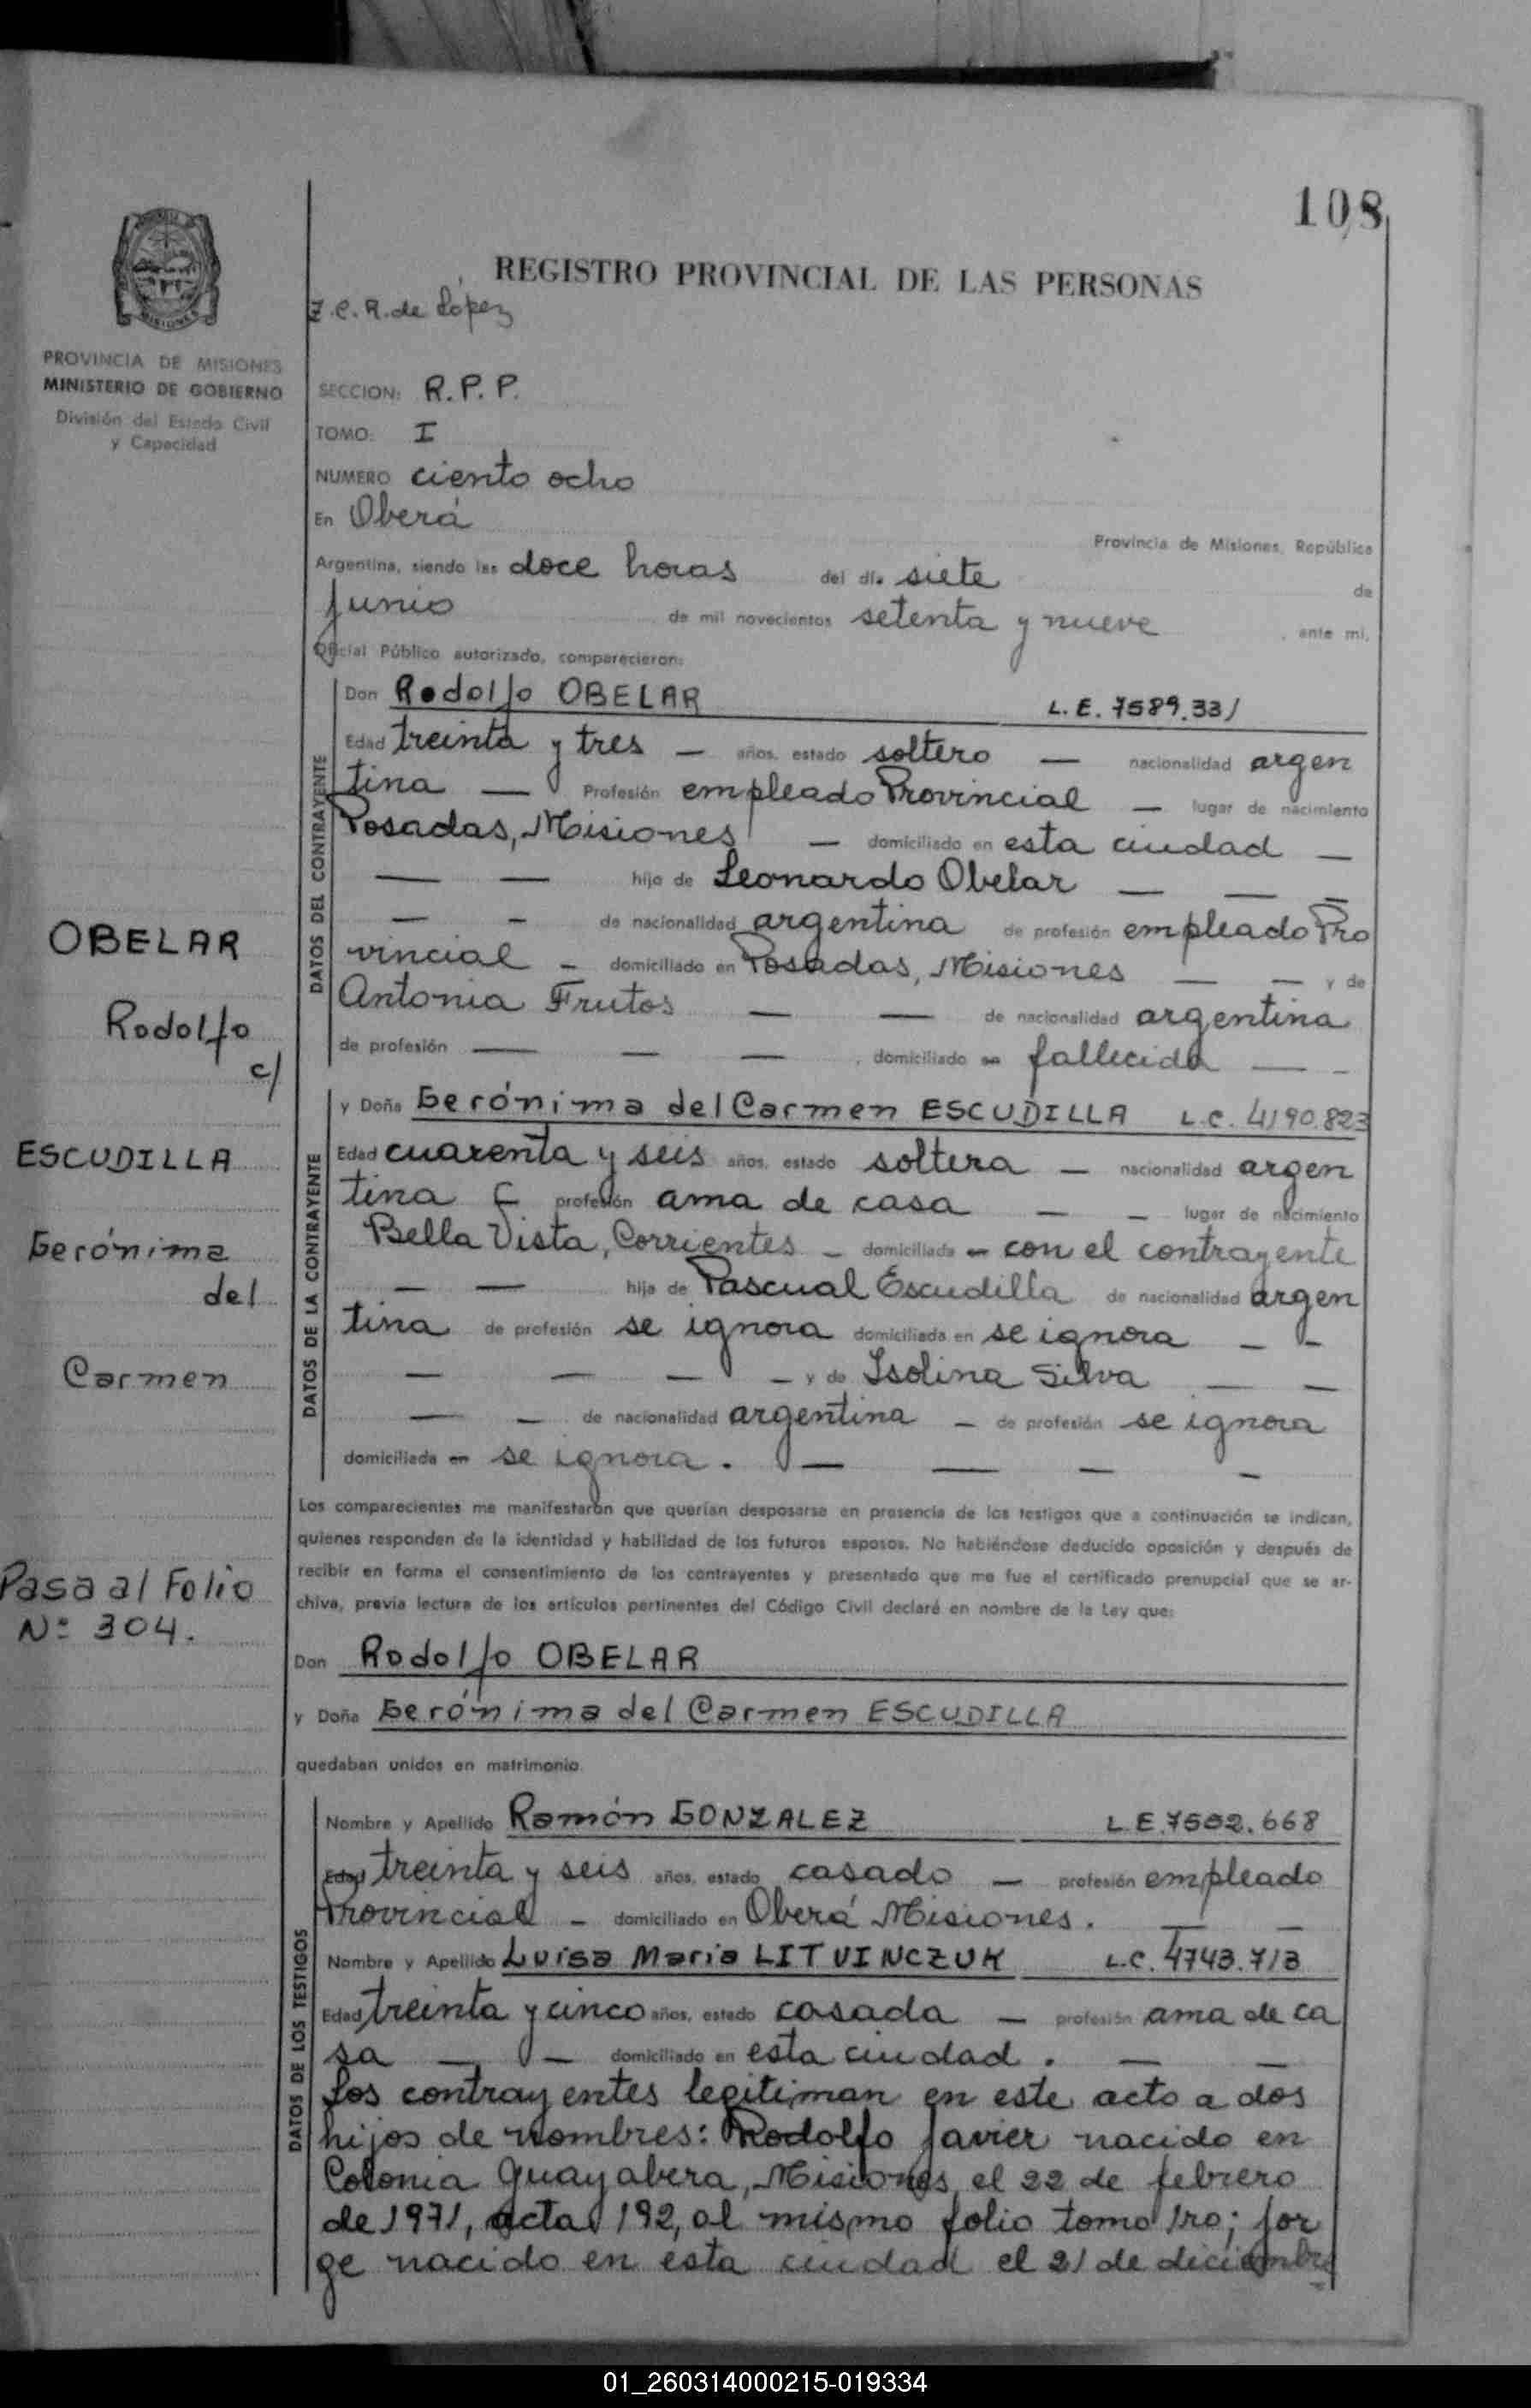 108
REGISTRO PROVINCIAL DE LAS PERSONAS
C.R. de López
PROVINCIA DE MISIONES
MINISTERIO DE GOBIERNO
División del Estado Civil
y Capacidad
SECCION: R.P.P.
TOMO: I
NUMERO ciento ocho
En Oberá
Provincia de Misiones, República
Argentina, siendo las doce horas del día siete de
junio de mil novecientos setenta y nueve, ante mi,
Oficial Público autorizado, comparecieron:
DATOS DEL CONTRAYENTE
Don Rodolfo OBELAR L.E. 7589.331
Edad treinta y tres — años, estado soltero — nacionalidad argen
tina — Profesión empleado Provincial — lugar de nacimiento
Posadas, Misiones — domiciliado en esta ciudad —
— — hijo de Leonardo Obelar — — —
— — de nacionalidad argentina de profesión empleado Pro
vincial — domiciliado en Posadas, Misiones — — y de
Antonia Frutos — — de nacionalidad argentina
de profesión — — — , domiciliado en fallecida — —
OBELAR
Rodolfo
c/
ESCUDILLA
Gerónima
del
Carmen
DATOS DE LA CONTRAYENTE
y Doña Gerónima del Carmen ESCUDILLA L.C. 4190.823
Edad cuarenta y seis años, estado soltera — nacionalidad argen
tina profesión ama de casa — — lugar de nacimiento
Bella Vista, Corrientes — domiciliada — con el contrayente
— — hija de Pascual Escudilla de nacionalidad argen
tina de profesión se ignora domiciliada en se ignora — —
— — — — y de Isolina Silva — —
— — de nacionalidad argentina — de profesión se ignora
domiciliada en se ignora. — — — —
Los comparecientes me manifestaron que querían desposarse en presencia de los testigos que a continuación se indican,
quienes responden de la identidad y habilidad de los futuros esposos. No habiéndose deducido oposición y después de
recibir en forma el consentimiento de los contrayentes y presentado que me fue el certificado prenupcial que se ar-
chiva, previa lectura de los artículos pertinentes del Código Civil declaré en nombre de la Ley que:
Pasa al Folio
Nº 304.
Don Rodolfo OBELAR
y Doña Gerónima del Carmen ESCUDILLA
quedaban unidos en matrimonio.
DATOS DE LOS TESTIGOS
Nombre y Apellido Ramón GONZALEZ L.E. 7592.668
Edad treinta y seis años, estado casado — profesión empleado
Provincial — domiciliado en Oberá Misiones. — —
Nombre y Apellido Luisa Maria LITVINCZUK L.C. 4743.713
Edad treinta y cinco años, estado casada — profesión ama de ca
sa — — domiciliado en esta ciudad. — —
Los contrayentes legitiman en este acto a dos
hijos de nombres: Rodolfo Javier nacido en
Colonia Guayabera, Misiones, el 22 de febrero
de 1971, acta 192, al mismo folio tomo 1ro; Jor
ge nacido en esta ciudad el 21 de diciembre
01_260314000215-019334